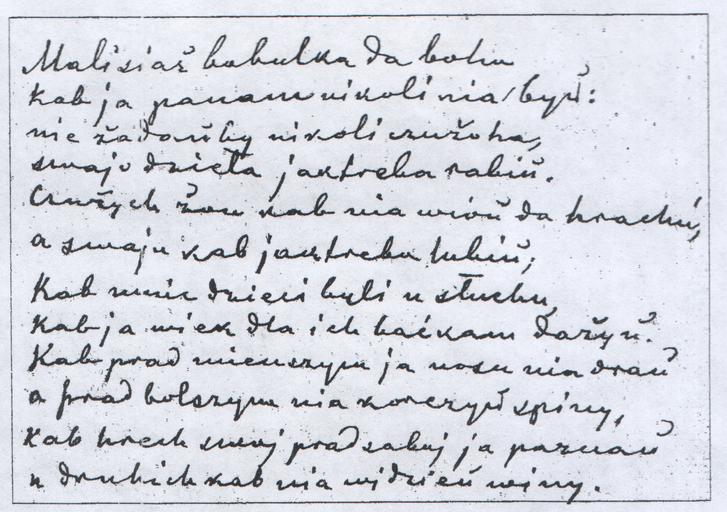 Malisiaž babulka da bohu
kab ja panam nikoli nia byŭ:
nie žadaŭby nikoli czužoha,
swajo dzieła jaktreba rabiŭ.
Czużych żon kab nia wioŭ da hrachu,
a swaju kab jaktreba lubiŭ;
Kab mnie dzieci byli u słuchu
kab ja wiek dla ich baćkam dažyŭ.
Kab prad mienszym ja nosu nia draŭ
a prad bolszym nia korczyŭ spiny,
kab hrech swoj prad saboj ja paznaŭ
u druhich kab nia widzieŭ winy.